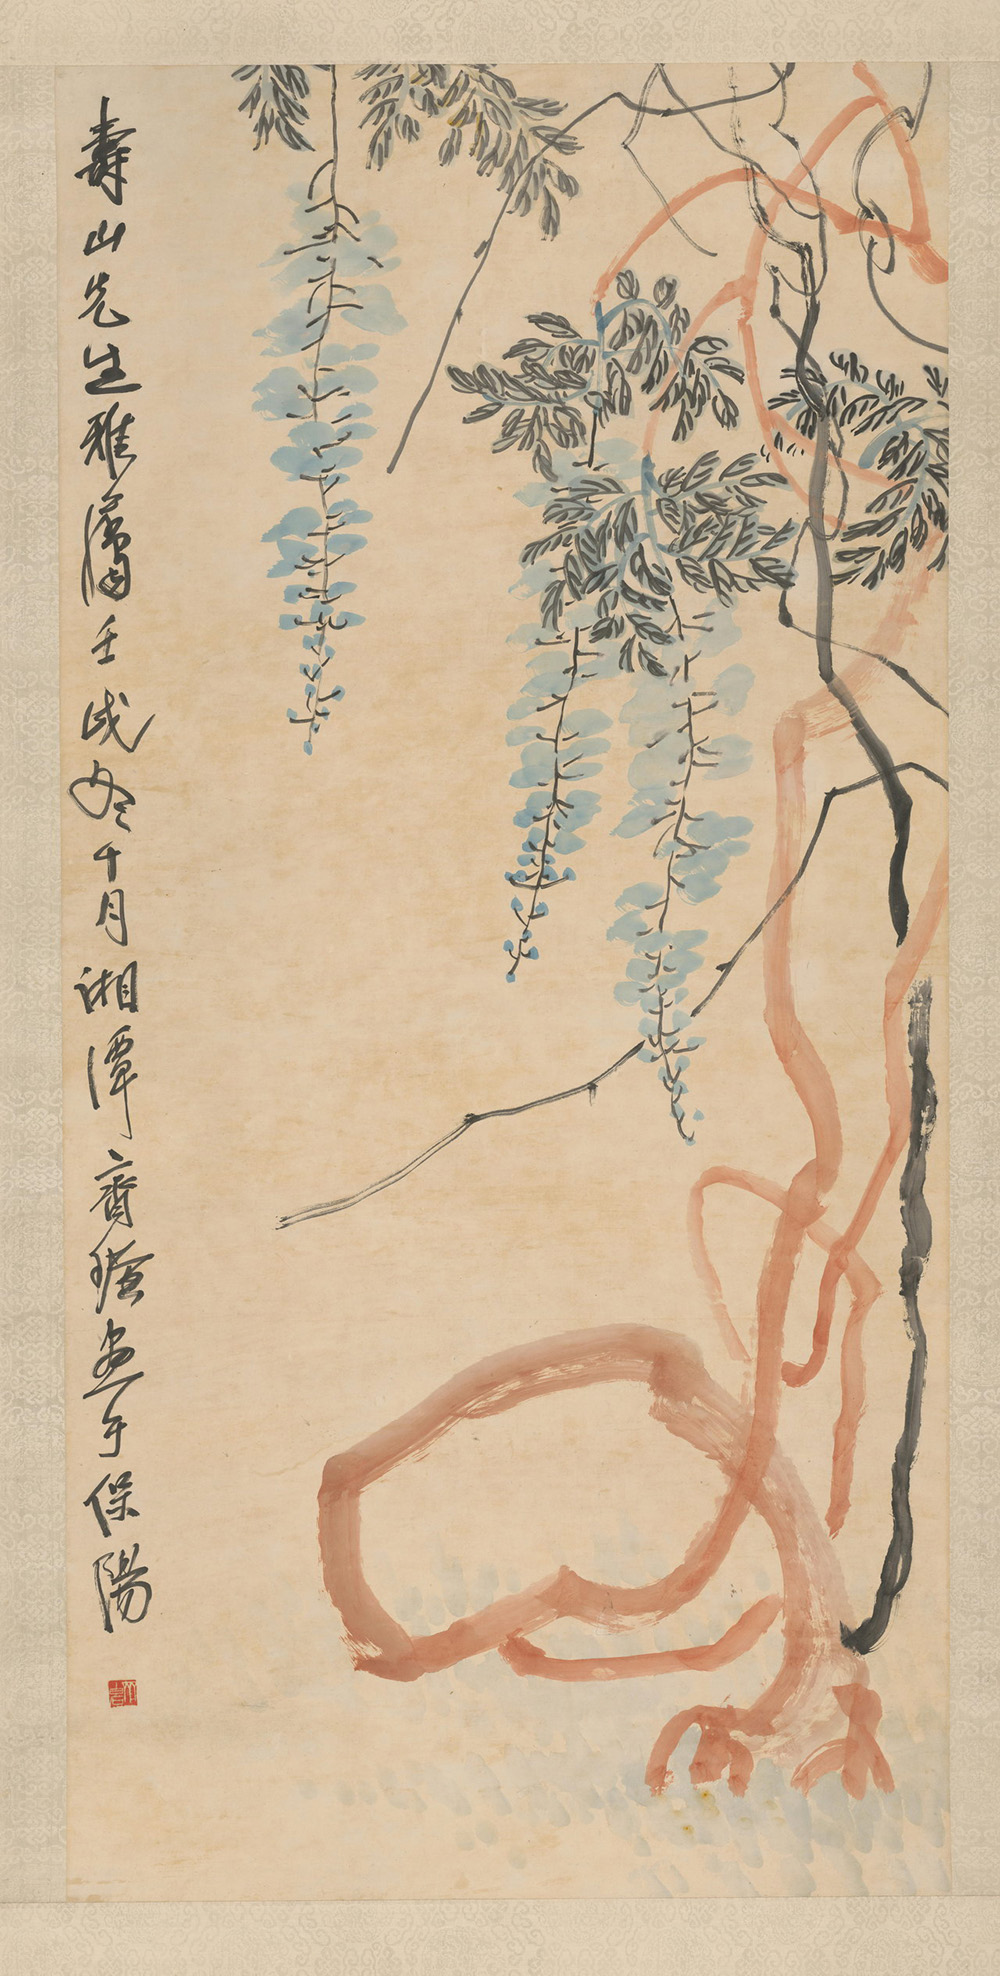 壽山先生雅屬壬戌冬十月湘潭齊璜畫于保陽